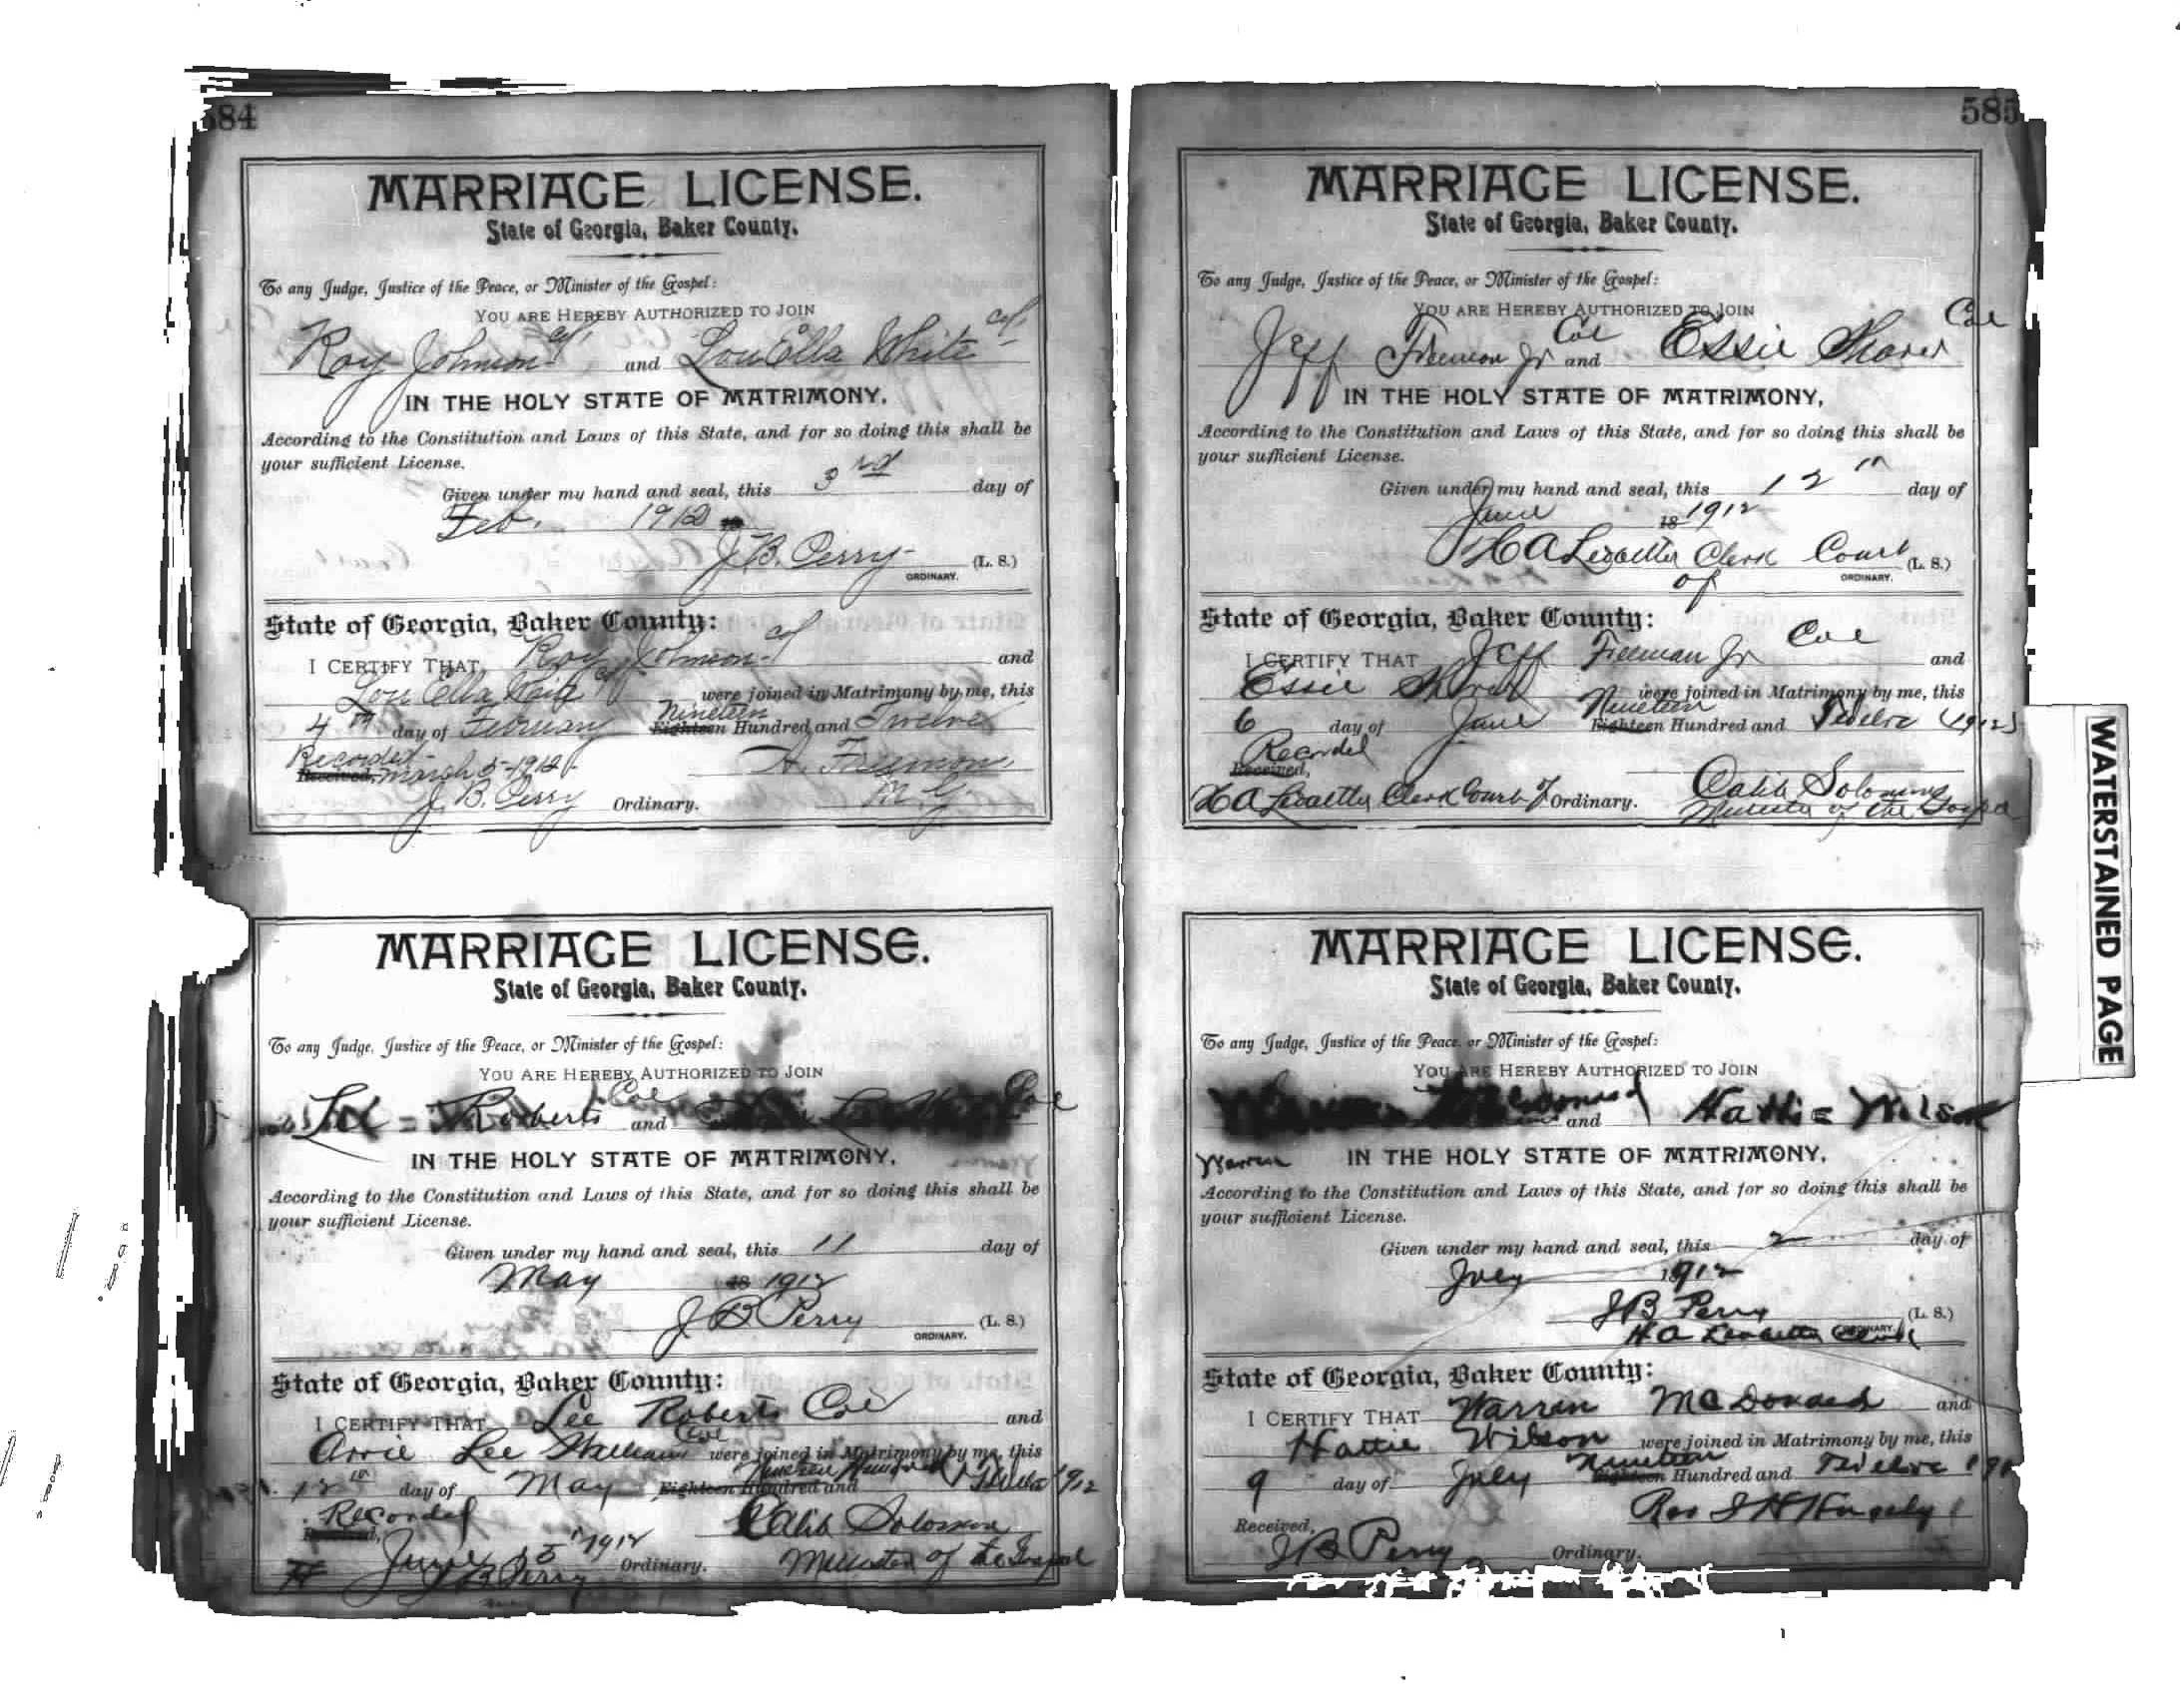 584
MARRIAGE LICENSE.
State of Georgia, Baker County.
To any Judge, Justice of the Peace, or Minister of the Gospel:
YOU ARE HEREBY AUTHORIZED TO JOIN
Roy Johnson col. and Lou Ella White col.
IN THE HOLY STATE OF MATRIMONY,
According to the Constitution and Laws of this State, and for so doing this shall be
your sufficient License.
Given under my hand and seal, this 3rd day of
Feb. 1912
J. B. Perry (L. S.)
ORDINARY.
State of Georgia, Baker County:
I CERTIFY THAT Roy Johnson col and
Lou Ella were joined in Matrimony by me, this
4th day of February Eighteen Nineteen Hundred and Twelve
Recorded
Received, March 5-1912
J. B. Perry Ordinary.
M. G.
MARRIAGE LICENSE.
State of Georgia, Baker County.
To any Judge, Justice of the Peace, or Minister of the Gospel:
YOU ARE HEREBY AUTHORIZED TO JOIN
Roberts Col and Col
IN THE HOLY STATE OF MATRIMONY,
According to the Constitution and Laws of this State, and for so doing this shall be
your sufficient License.
Given under my hand and seal, this 11 day of
May 18 1912
J B Perry (L. S.)
ORDINARY.
State of Georgia, Baker County:
I CERTIFY THAT Lee Roberts Col and
Arrie Lee Col were joined in Matrimony by me, this
12th day of May Eighteen Hundred and 1912
Recorded
Received,
June 15" 1912 Ordinary.
J B Perry
Calib Solomon
Minister of the Gospel
585
MARRIAGE LICENSE.
State of Georgia, Baker County.
To any Judge, Justice of the Peace, or Minister of the Gospel:
YOU ARE HEREBY AUTHORIZED TO JOIN
Jeff Freeman Jr Col and Essie Col
IN THE HOLY STATE OF MATRIMONY,
According to the Constitution and Laws of this State, and for so doing this shall be
your sufficient License.
Given under my hand and seal, this 12" day of
June 18 1912
H A Clerk Court (L. S.)
of ORDINARY.
State of Georgia, Baker County:
I CERTIFY THAT Jeff Freeman Jr Col and
Essie were joined in Matrimony by me, this
6 day of June Eighteen Nineteen Hundred and Twelve (1912)
Recorded
Received,
H A Clerk Court of Ordinary.
Calib Solomon
Minister of the Gospel
MARRIAGE LICENSE.
State of Georgia, Baker County.
To any Judge, Justice of the Peace, or Minister of the Gospel:
YOU ARE HEREBY AUTHORIZED TO JOIN
McDonard and Hattie Wilson
Warren IN THE HOLY STATE OF MATRIMONY,
According to the Constitution and Laws of this State, and for so doing this shall be
your sufficient License.
Given under my hand and seal, this 2 day of
July 1912
J B Perry (L. S.)
H A Clerk ORDINARY.
State of Georgia, Baker County:
I CERTIFY THAT Warren McDonard and
Hattie Wilson were joined in Matrimony by me, this
9 day of July Eighteen Nineteen Hundred and Twelve
Rev
Received,
J B Perry Ordinary.
WATERSTAINED PAGE